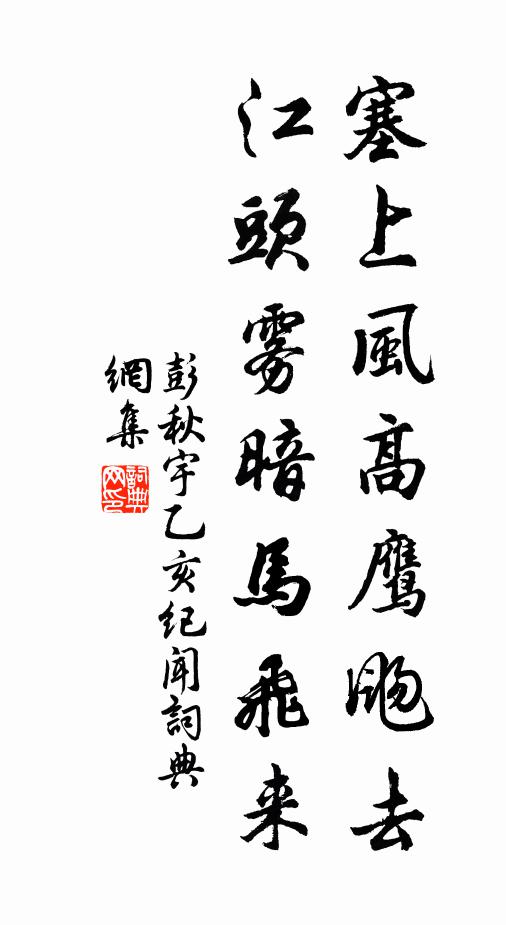 塞上風高鷹颺去
江頭雾暗馬飛来
彭秋宇乙亥纪闻詞典
網集
詞典
网印